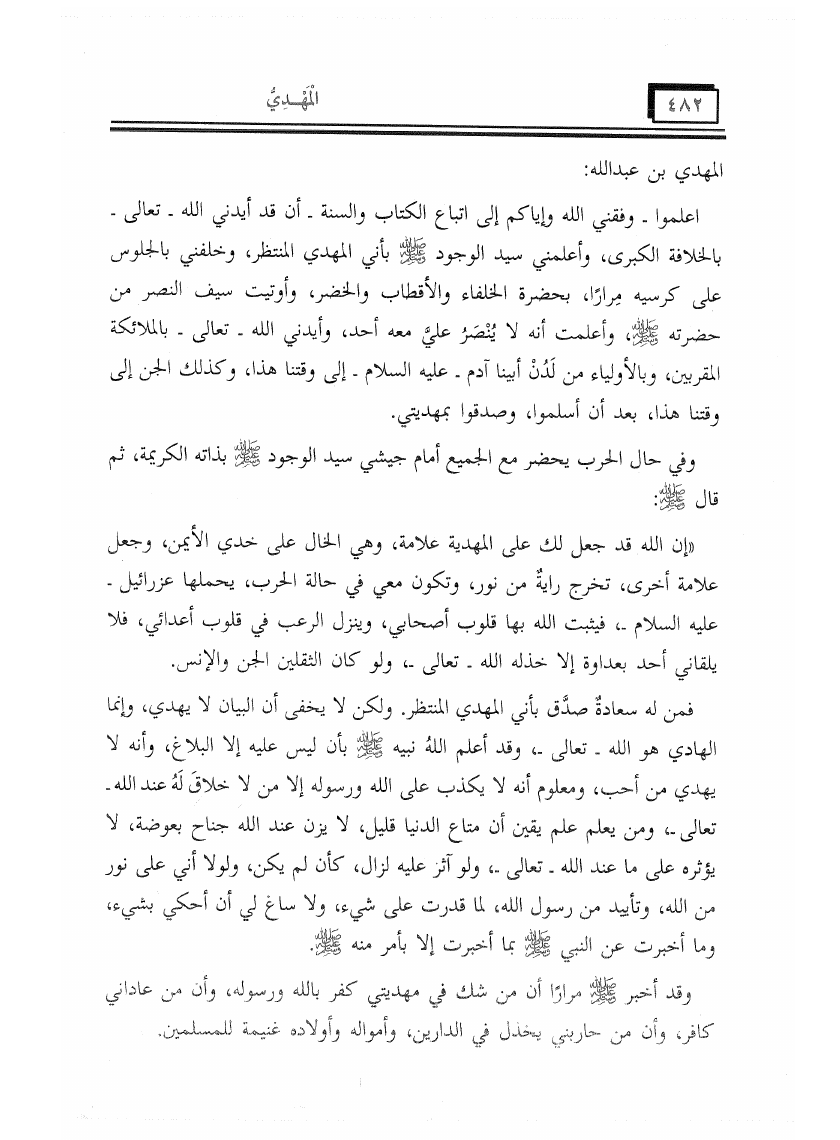 ٤٨٢
الْمَهْـدِيُّ
المهدي بن عبدالله:
اعلموا ـ وفقني الله وإياكم إلى اتباع الكتاب والسنة ـ أن قد أيدني الله ـ تعالى ـ
بالخلافة الكبرى، وأعلمني سيد الوجود ﷺ بأني المهدي المنتظر، وخلفني بالجلوس
على كرسيه مِرارًا، بحضرة الخلفاء والأقطاب والخضر، وأوتيت سيف النصر من
حضرته ﷺ، وأعلمت أنه لا يُنْصَرُ عليَّ معه أحد، وأيدني الله ـ تعالى ـ بالملائكة
المقربين، وبالأولياء من لَدُنْ أبينا آدم ـ عليه السلام ـ إلى وقتنا هذا، وكذلك الجن إلى
وقتنا هذا، بعد أن أسلموا، وصدقوا بمهديتي.
وفي حال الحرب يحضر مع الجميع أمام جيشي سيد الوجود ﷺ بذاته الكريمة، ثم
قال ﷺ:
«إن الله قد جعل لك على المهدية علامة، وهي الخال على خدي الأيمن، وجعل
علامة أخرى، تخرج رايةٌ من نور، وتكون معي في حالة الحرب، يحملها عزرائيل ـ
عليه السلام ـ، فيثبت الله بها قلوب أصحابي، وينزل الرعب في قلوب أعدائي، فلا
يلقاني أحد بعداوة إلا خذله الله ـ تعالى ـ، ولو كان الثقلين الجن والإنس.
فمن له سعادةٌ صدَّق بأني المهدي المنتظر. ولكن لا يخفى أن البيان لا يهدي، وإنما
الهادي هو الله ـ تعالى ـ، وقد أعلم اللهُ نبيه ﷺ بأن ليس عليه إلا البلاغ، وأنه لا
يهدي من أحب، ومعلوم أنه لا يكذب على الله ورسوله إلا من لا خلاقَ لَهُ عند الله ـ
تعالى ـ، ومن يعلم علم يقين أن متاع الدنيا قليل، لا يزن عند الله جناح بعوضة، لا
يؤثره على ما عند الله ـ تعالى ـ، ولو آثر عليه لزال، كأن لم يكن، ولولا أني على نور
من الله، وتأييد من رسول الله، لما قدرت على شيء، ولا ساغ لي أن أحكي بشيء،
وما أخبرت عن النبي ﷺ بما أخبرت إلا بأمر منه ﷺ.
وقد أخبر ﷺ مرارًا أن من شك في مهديتي كفر بالله ورسوله، وأن من عاداني
كافر، وأن من حاربني يخذل في الدارين، وأمواله وأولاده غنيمة للمسلمين.